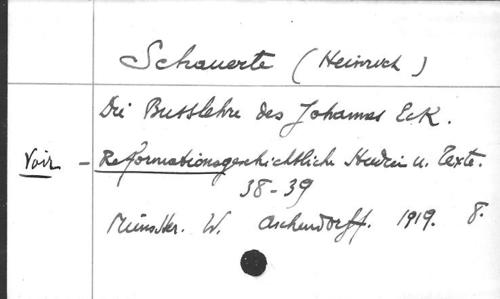 Schauerte (Heinrich)
Die Busslehre des Johannes Eck.
Voir - Reformationsgeschichtliche Studien u. Texte.
38-39
Münster. W. Aschendorff. 1919. 8.